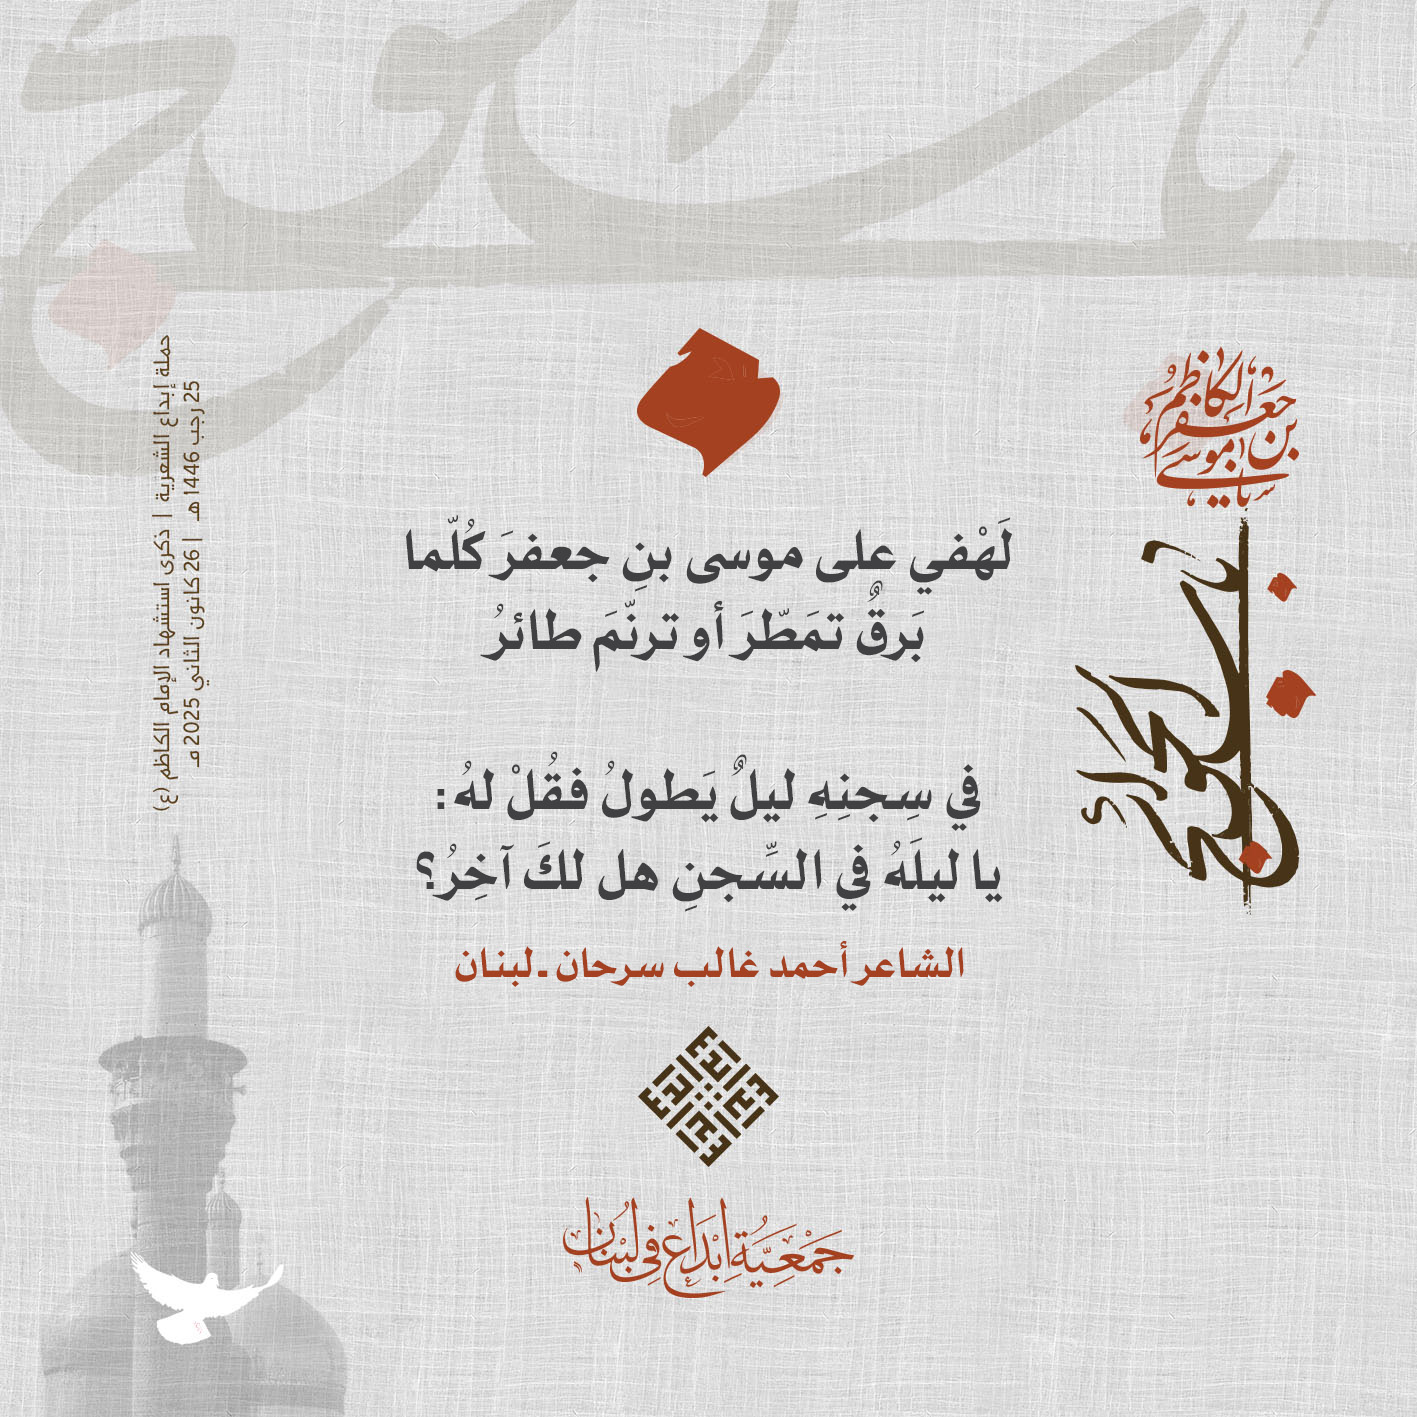 يا باب الحوائج
يا موسى بن جعفر الكاظم
لَهْفي على موسى بنِ جعفرَ كُلّما
بَرقٌ تمَطّرَ أو ترنّمَ طائرُ
في سِجنِهِ ليلٌ يَطولُ فقُلْ لهُ:
يا ليلَهُ في السِّجنِ هل لكَ آخِرُ؟
الشاعر أحمد غالب سرحان ـ لبنان
حملة إبداع الشعرية | ذكرى استشهاد الإمام الكاظم (ع)
25 رجب 1446 هـ | 26 كانون الثاني 2025 مـ
جَمْعِيَّةُ إِبْدَاع فِي لُبْنَان